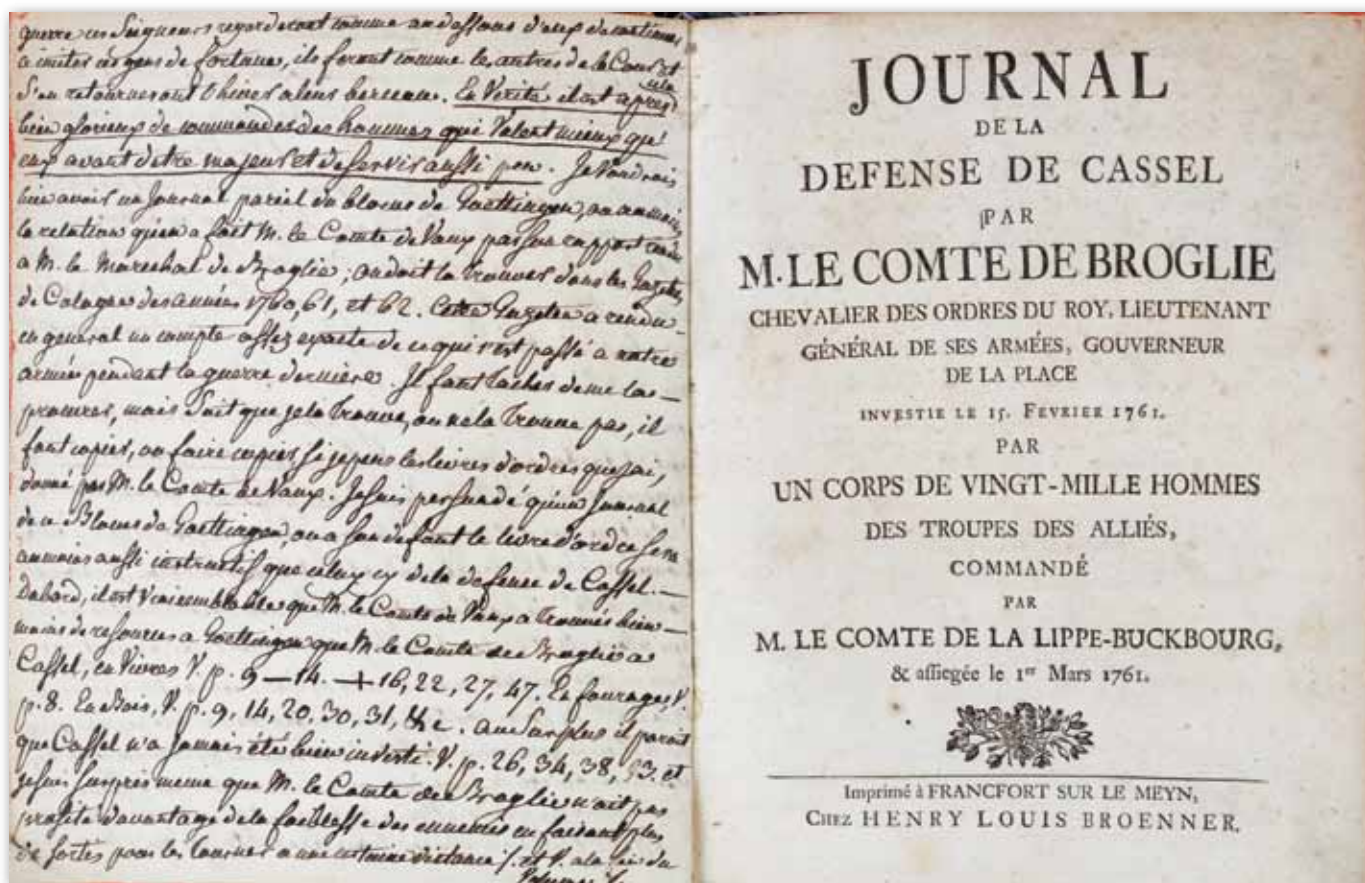 guerre ces Seigneurs regarderont comme au dessous d'eux de continuer
a imiter ces gens de fortune, ils feront comme les autres de la Cour et
S'en retourneront a leurs berceaux. En Verité il est après cela
bien glorieux de commander des hommes qui Valent mieux qu'
eux avant d'etre majeurs et de servir aussi peu. Je Voudrois
bien avoir un Journal pareil du blocus de Goettingen, ou au moins
la relation qu'en a fait M. le Comte de Vaux par son rapport
a M. le Marechal de Broglie; on doit la trouver dans les Gazettes
de Cologne des années 1760, 61, et 62. Cette Gazette a rendu
en general un compte assez exacte de ce qui s'est passé a notre
armée pendant la guerre derniere. Il faut tacher de me la
procurer, mais Soit que je la trouve, ou ne la trouve pas, il
faut copier, ou faire copier les livres d'ordres que j'ai,
donné par M. le Comte de Vaux. Je suis persuadé qu'un Journal
de ce Blocus de Goettingen, ou a son defaut le livre d'ordre sera
au moins aussi instructif que celuy cy de la defense de Cassel.
Dabord, il est Vraisemblable que M. le Comte de Vaux a trouvé bien
moins de resources a Goettingen que M. le Comte de Broglie a
Cassel, en Vivres V. p. 9 — 14. — 16, 22, 27, 47. En fourages, V.
p. 8. En Bois, V. p. 9, 14, 20, 30, 31, &c. au Surplus il paroit
que Cassel n'a Jamais été bien investi. V. p. 26, 34, 38, 53. et
je suis surpris meme que M. le Comte de Broglie n'ait pas
profité davantage de la foiblesse des ennemis en faisant plus
de sorties pour les tourner a une certaine distance et V. a la fin du
JOURNAL
DE LA
DEFENSE DE CASSEL
PAR
M. LE COMTE DE BROGLIE
CHEVALIER DES ORDRES DU ROY, LIEUTENANT
GÉNÉRAL DE SES ARMÉES, GOUVERNEUR
DE LA PLACE
INVESTIE LE 15. FEVRIER 1761.
PAR
UN CORPS DE VINGT-MILLE HOMMES
DES TROUPES DES ALLIÉS,
COMMANDÉ
PAR
M. LE COMTE DE LA LIPPE-BUCKBOURG,
& assiegée le 1er Mars 1761.
Imprimé à FRANCFORT SUR LE MEYN,
CHEZ HENRY LOUIS BROENNER.